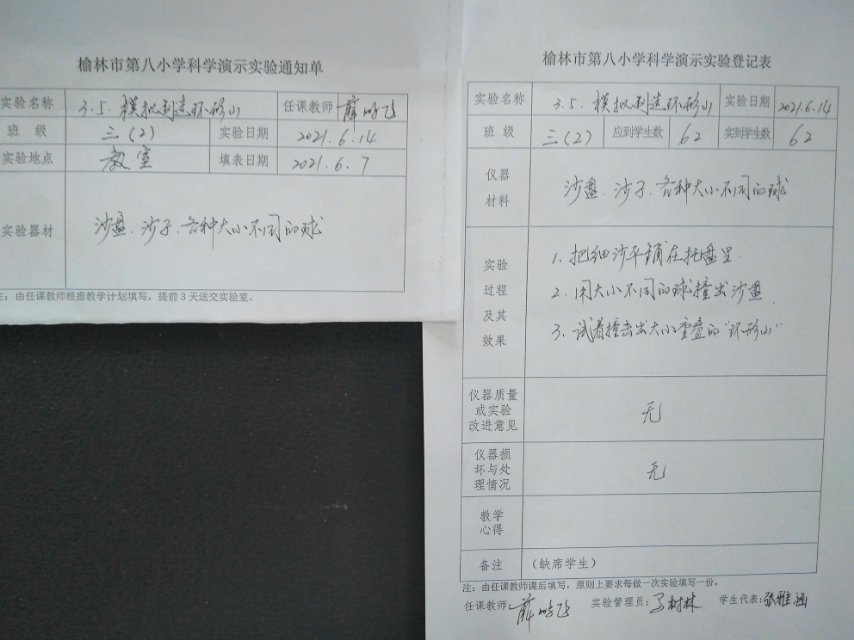 榆林市第八小学科学演示实验通知单
实验名称 3.5.模拟制造环形山 任课教师
班 级 三(2) 实验日期 2021.6.14
实验地点 教室 填表日期 2021.6.7
实验器材 沙盘、沙子、各种大小不同的球
注：由任课教师根据教学计划填写，提前3天送交实验室。
榆林市第八小学科学演示实验登记表
实验名称 3.5.模拟制造环形山 实验日期 2021.6.14
班 级 三(2) 应到学生数 62 实到学生数 62
仪器
材料
沙盘、沙子、各种大小不同的球
实验
过程
及其
效果
1.把细沙平铺在托盘里.
2.用大小不同的球撞出沙盘.
3.试着撞击出大小重叠的"环形山"
仪器质量
或实验
改进意见
无
仪器损
坏与处
理情况
无
教学
心得
备注 （缺席学生）
注：由任课教师课后填写，原则上要求每做一次实验填写一份。
任课教师： 实验管理员： 学生代表：张雅涵